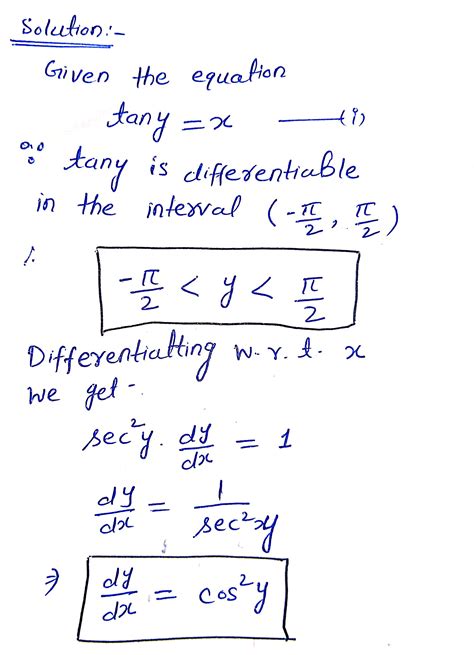 Solution:-
Given the equation
tany = x —(i)
∵ tany is differentiable
in the interval (-π/2, π/2)
∴
-π/2 < y < π/2
Differentialting w.r.t. x
we get -
sec²y. dy/dx = 1
dy/dx = 1/sec²xy
⇒ dy/dx = cos²y